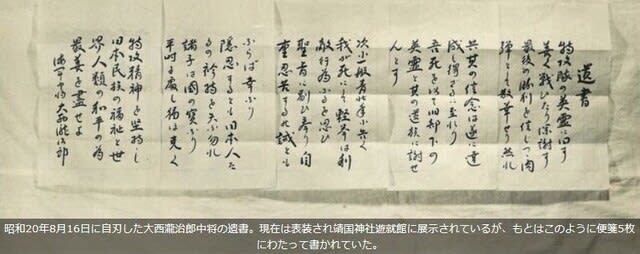 遺書
特攻隊の英霊に曰す
善く戦ひたり深謝す
最後の勝利を信じつゝ肉
彈として散華せり然れ
共其の信念は遂に達
成し得ざるに至れり
吾死を以て旧部下の
英霊と其の遺族に謝せ
んとす
次に一般青壮年に告ぐ
我が死にして軽挙は利
敵行為なるを思ひ
聖旨に副ひ奉り自
重忍苦するの誡とも
ならば幸なり
隠忍するとも日本人た
るの矜持を失ふ勿れ
諸子は國の寶なり
平時に處し猶ほ克く
特攻精神を堅持し
日本民族の福祉と世
界人類の和平の為
最善を盡せよ
海軍中将大西瀧治郎
昭和20年8月16日に自刃した大西瀧治郎中将の遺書。現在は表装され靖国神社遊就館に展示されているが、もとはこのように便箋5枚
にわたって書かれていた。